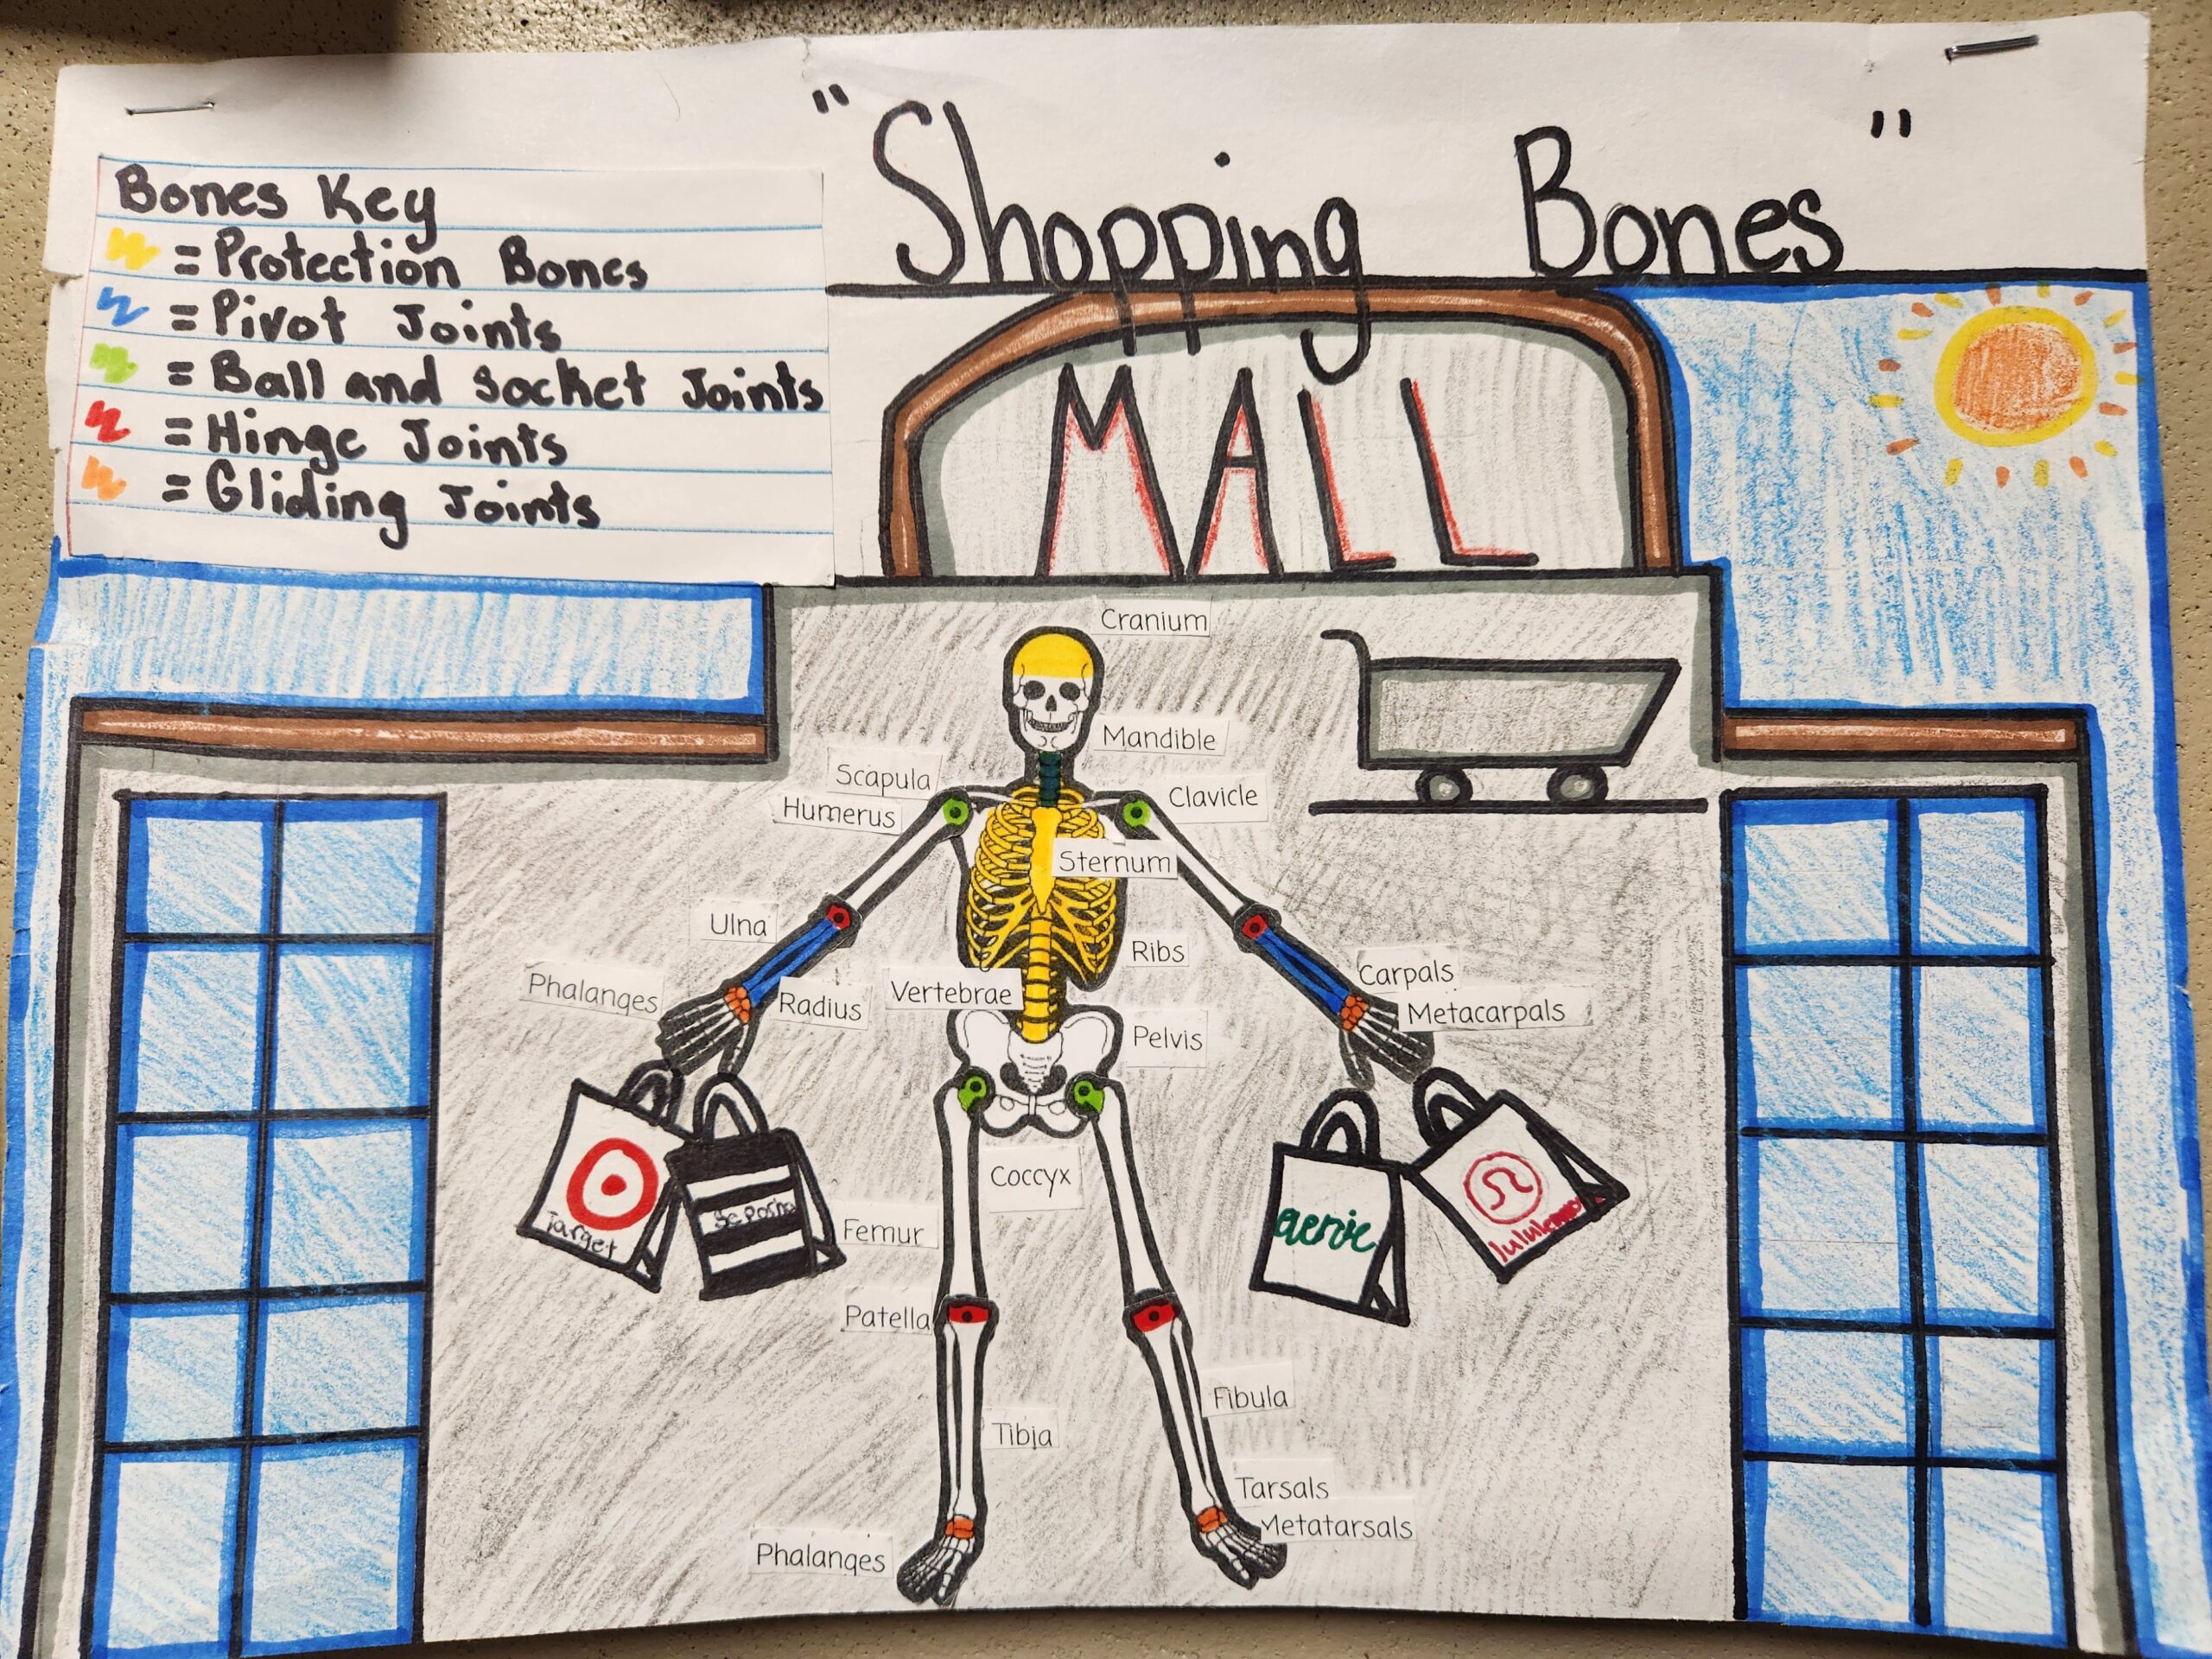 "Shopping Bones"
Bones Key
= Protection Bones
= Pivot Joints
= Ball and Socket Joints
= Hinge Joints
= Gliding Joints
MALL
Cranium
Mandible
Scapula
Clavicle
Humerus
Sternum
Ulna
Ribs
Carpals
Phalanges
Radius
Vertebrae
Metacarpals
Pelvis
Coccyx
Target
aerie
lululemon
Femur
Patella
Fibula
Tibia
Tarsals
Metatarsals
Phalanges